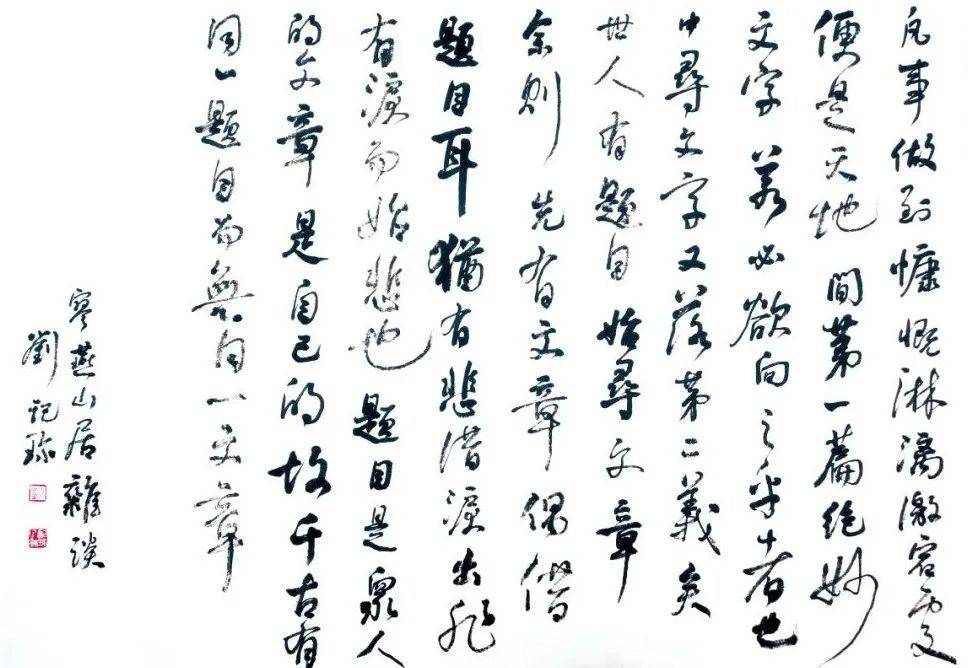 凡事做到慷慨淋漓激宕處
便是天地間第一篇絕妙
文字若必欲向之乎者也
中尋文字又落第二義矣
世人有題目始尋文章
余則先有文章偶借
題目耳猶有悲借淚出非
有淚而始悲也題目是衆人
的文章是自己的故千古有
同一題目而無同一文章
廖燕山居雜談
劉記